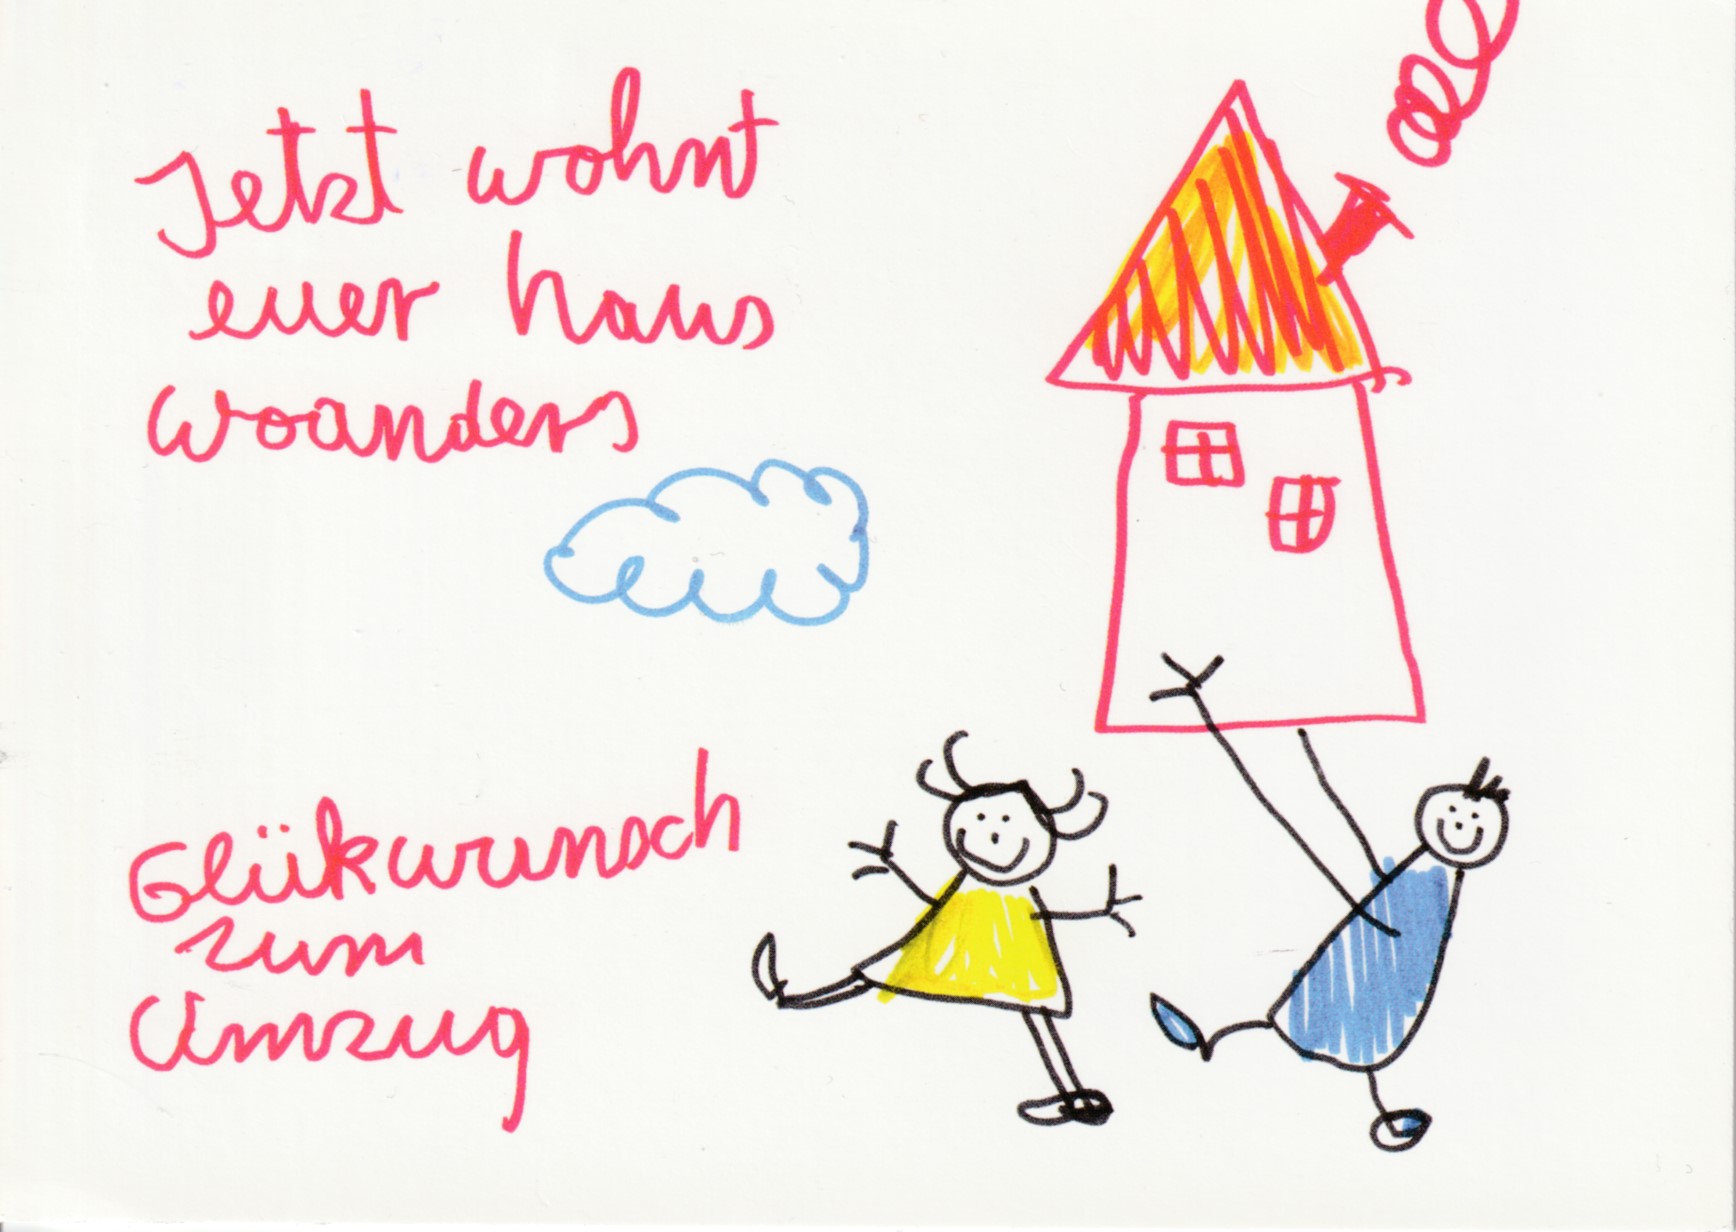 Jetzt wohnt
euer haus
woanders
Glükwunsch
zum
Umzug